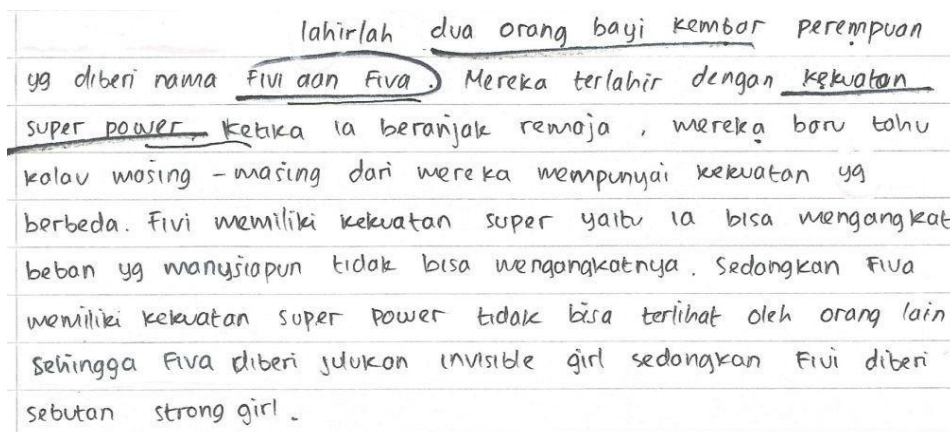 lahirlah dua orang bayi kembar perempuan
yg diberi nama Fivi dan Fiva. Mereka terlahir dengan kekuatan
super power. Ketika ia beranjak remaja, mereka baru tahu
kalau masing-masing dari mereka mempunyai kekuatan yg
berbeda. Fivi memiliki kekuatan super yaitu ia bisa mengangkat
beban yg manusiapun tidak bisa mengangkatnya. Sedangkan Fiva
memiliki kekuatan super power tidak bisa terlihat oleh orang lain
sehingga Fiva diberi julukan invisible girl sedangkan Fivi diberi
sebutan strong girl.